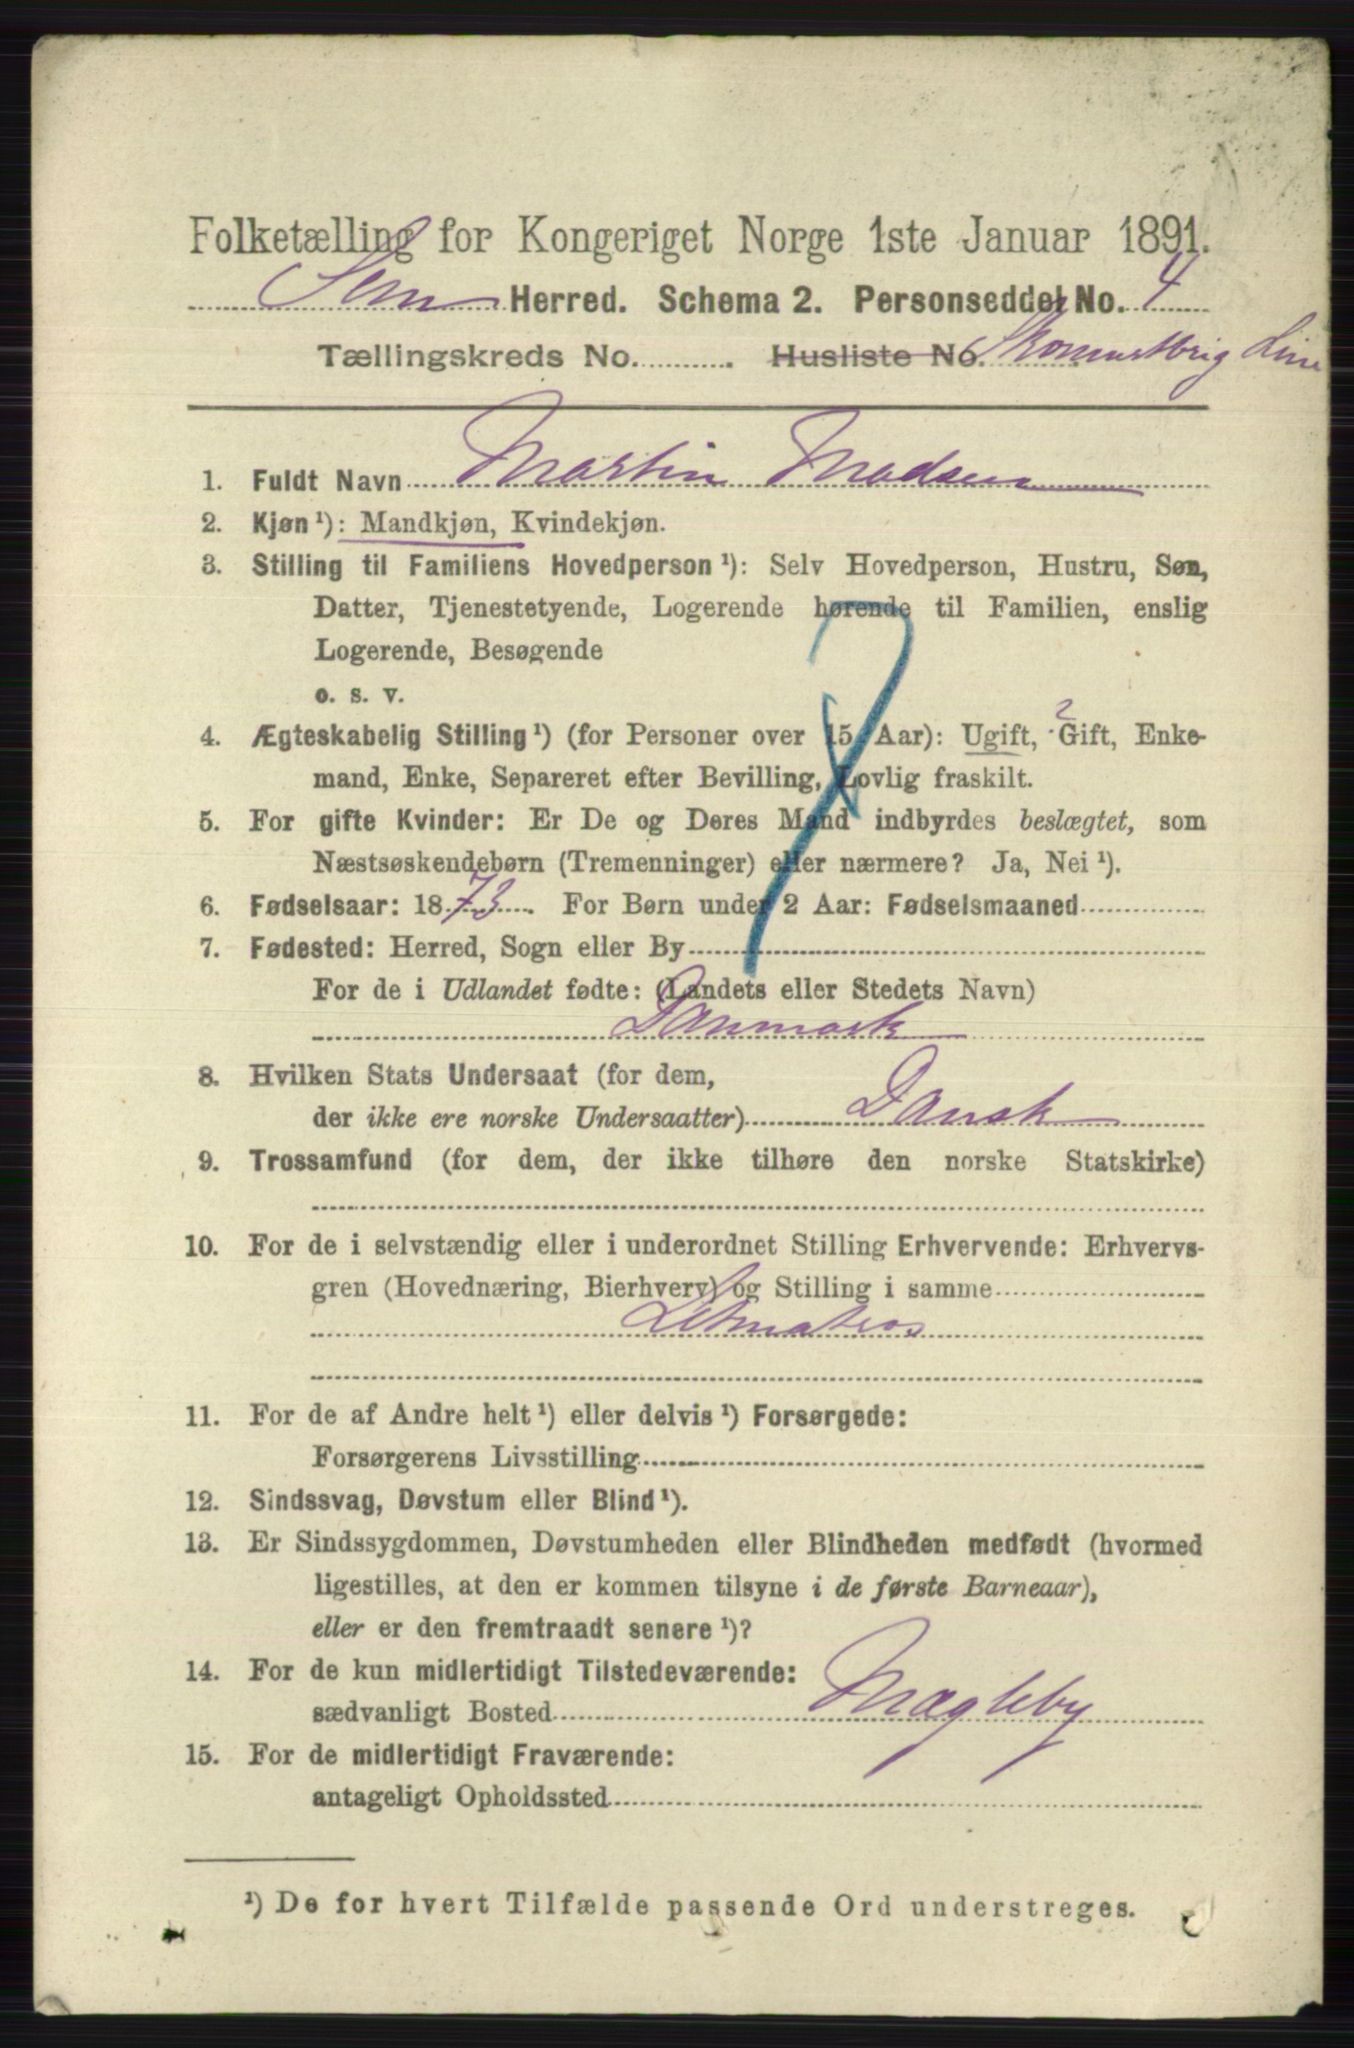 Folketælling for Kongeriget Norge 1ste Januar 1891.
Sem Herred. Schema 2. Personseddel No. 4
Tællingskreds No. . Husliste No. Line
1. Fuldt Navn Martin Madsen
2. Kjøn ¹): Mandkjøn, Kvindekjøn.
3. Stilling til Familiens Hovedperson ¹): Selv Hovedperson, Hustru, Søn,
Datter, Tjenestetyende, Logerende hørende til Familien, enslig
Logerende, Besøgende
o. s. v.
4. Ægteskabelig Stilling ¹) (for Personer over 15 Aar): Ugift, Gift, Enke-
mand, Enke, Separeret efter Bevilling, Lovlig fraskilt.
5. For gifte Kvinder: Er De og Deres Mand indbyrdes beslægtet, som
Næstsøskendebørn (Tremenninger) eller nærmere? Ja, Nei ¹).
6. Fødselsaar: 1873. For Børn under 2 Aar: Fødselsmaaned
7. Fødested: Herred, Sogn eller By
For de i Udlandet fødte: (Landets eller Stedets Navn)
Danmark
8. Hvilken Stats Undersaat (for dem,
der ikke ere norske Undersaatter) Dansk
9. Trossamfund (for dem, der ikke tilhøre den norske Statskirke)
10. For de i selvstændig eller i underordnet Stilling Erhvervende: Erhvervs-
gren (Hovednæring, Bierhverv) og Stilling i samme
Letmatros
11. For de af Andre helt ¹) eller delvis ¹) Forsørgede:
Forsørgerens Livsstilling
12. Sindssvag, Døvstum eller Blind ¹).
13. Er Sindssygdommen, Døvstumheden eller Blindheden medfødt (hvormed
ligestilles, at den er kommen tilsyne i de første Barneaar),
eller er den fremtraadt senere ¹)?
14. For de kun midlertidigt Tilstedeværende:
sædvanligt Bosted Magleby
15. For de midlertidigt Fraværende:
antageligt Opholdssted
¹) De for hvert Tilfælde passende Ord understreges.